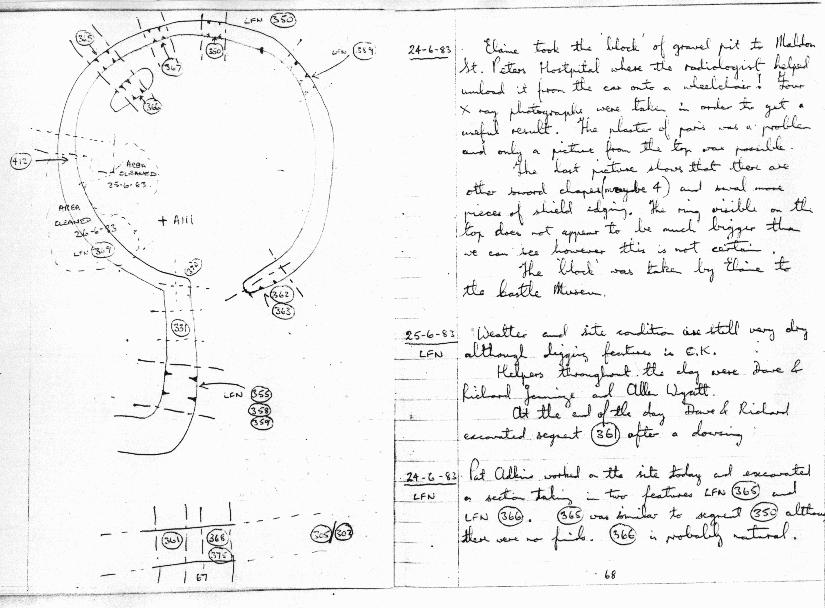 LFN 350
365
367
350
LFN 354
366
412
AREA
CLEANED
25-6-83.
AREA
CLEANED
26-6-83
LFN 369
+ A111
370
362
363
331
LFN 355
358
359
361
368
375
305/303
67
24-6-83
Elaine took the 'block' of gravel pit to Maldon
St. Peters Hostpital where the radiologist helped
unload it from the car onto a wheelchair! Four
X ray photographs were taken in order to get a
useful result. The plaster of paris was a problem
and only a picture from the top was possible.
The best picture shows that there are
other sword chapes (maybe 4) and several more
pieces of shield edging. The ring visible on the
top does not appear to be much bigger than
we can see however this is not certain.
The 'block' was taken by Elaine to
the Castle Museum.
25-6-83
LFN
Weather and site condition are still very dry
although digging features is E.K.
Helpers throughout the day were Dave &
Richard Jennings and Allen Wyatt.
At the end of the day Dave & Richard
excavated segment 361 after a dowsing
24-6-83
LFN
Pat Adkins worked on the site today and excavated
a section taking in two features LFN 365 and
LFN 366. 365 was similar to segment 350 although
there were no finds. 366 is probably natural.
68